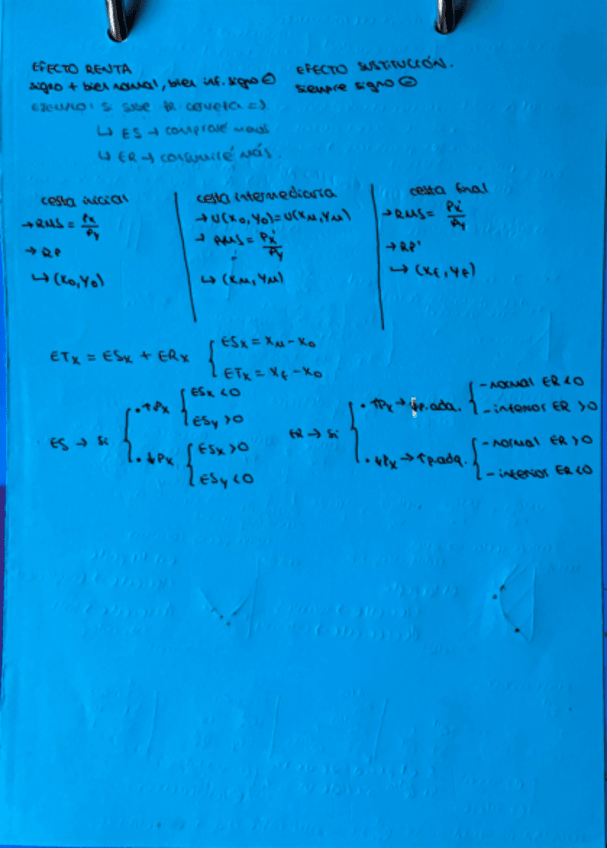 EFECTO RENTA
signo + bien normal, bien inf. signo ⊖
EFECTO SUSTITUCIÓN.
siempre signo ⊖
ejemplo: si sube
↳ ES → compraré menos
↳ ER → consumiré más.
cesta inicial
→ RMS = Px/Py
→ RP
↳ (x₀, y₀)
cesta intermediaria
→ U(x₀, y₀) = U(xM, yM)
→ RMS = Px'/Py
↳ (xM, yM)
cesta final
→ RMS = Px'/Py
→ RP'
↳ (xF, yF)
ETx = ESx + ERx { ESx = xM - x₀
ETx = xF - x₀
ES → si { • ↑Px { ESx < 0
ESy > 0
• ↓Px { ESx > 0
ESy < 0
ER → si { • ↑Px → ↓p.adq. { - normal ER < 0
- inferior ER > 0
• ↓Px → ↑p.adq. { - normal ER > 0
- inferior ER < 0